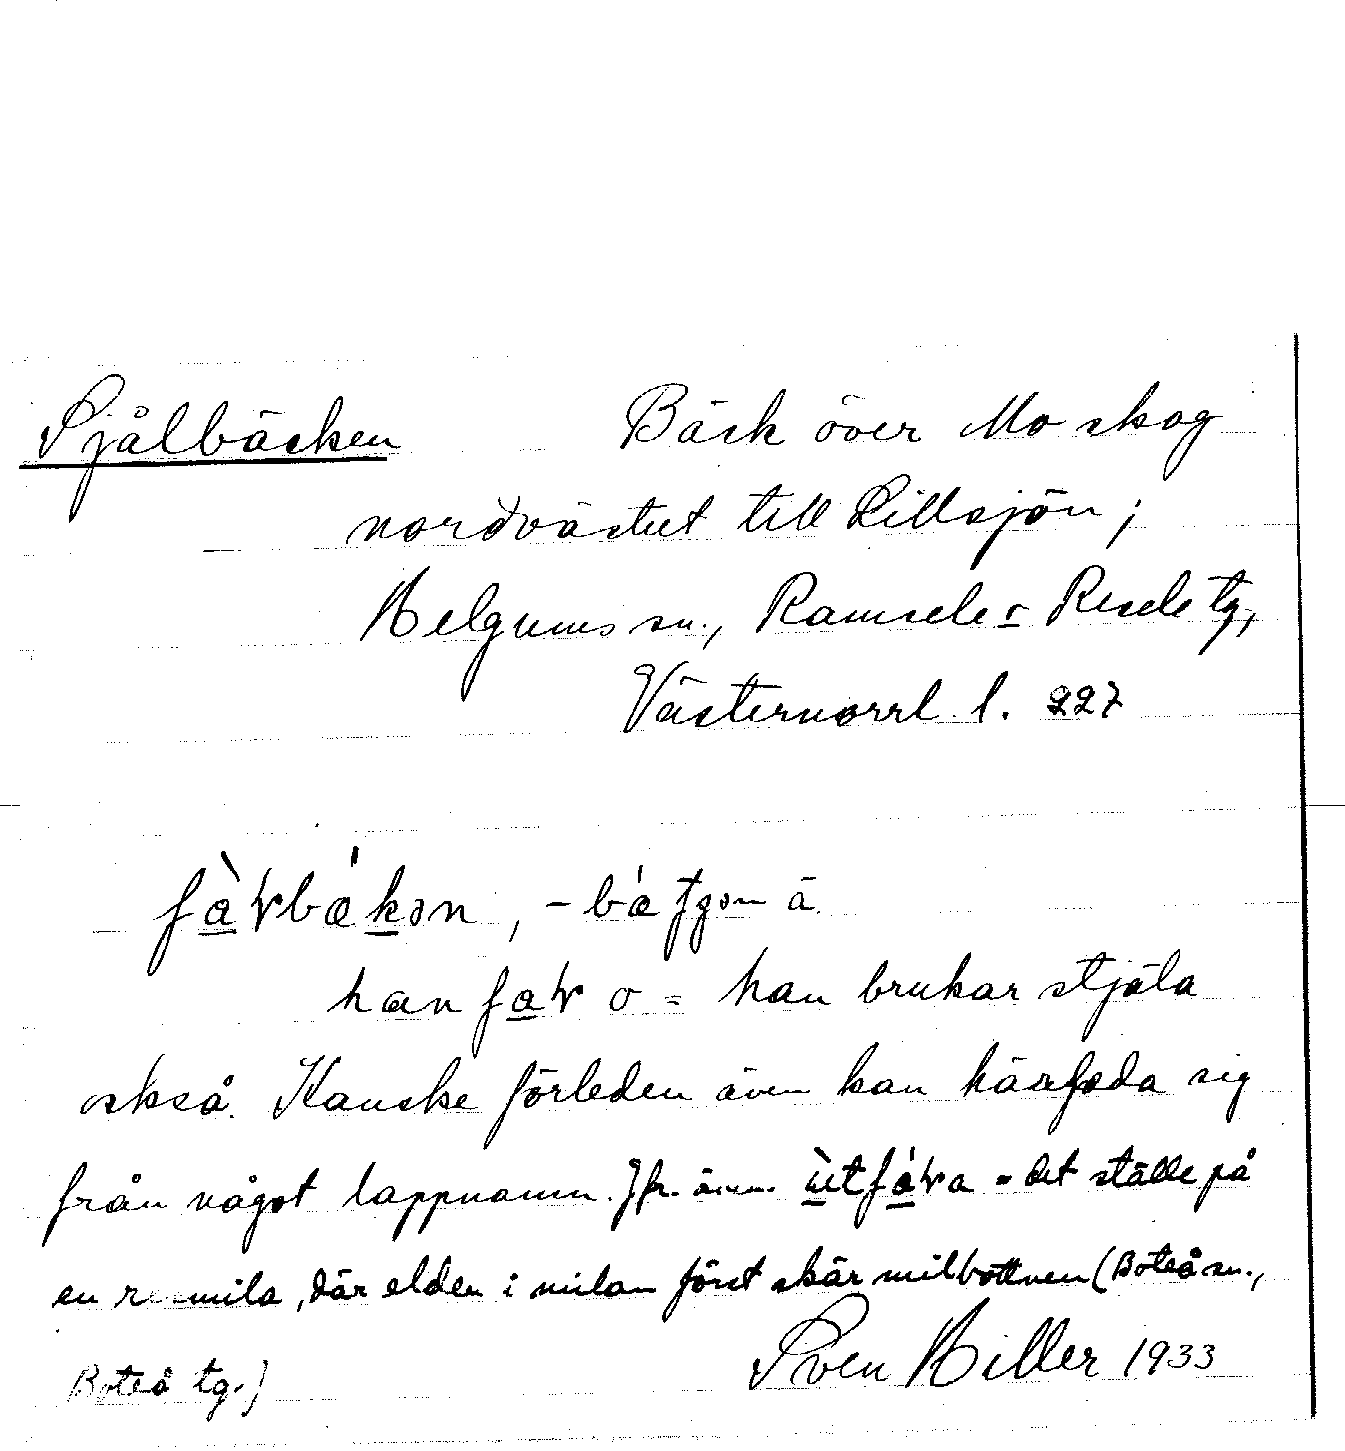 Sjålbäcken Bäck över Mo skog
nordvästut till Lillsjön;
Helgums sn., Ramsele o Resele tg,
Västernorrl. l. 227
ʃàɽbækən, -bæʃgən ä.
han ʃaɽ o = han brukar stjäla
också. Kanske förleden även kan härleda sig
från något lappnamn. Jfr. även ùtʃáɽa = det ställe på
en mila, där elden i milan först skär milbottnen (Boteå sn.,
Boteå tg.) Sven Hiller 1933